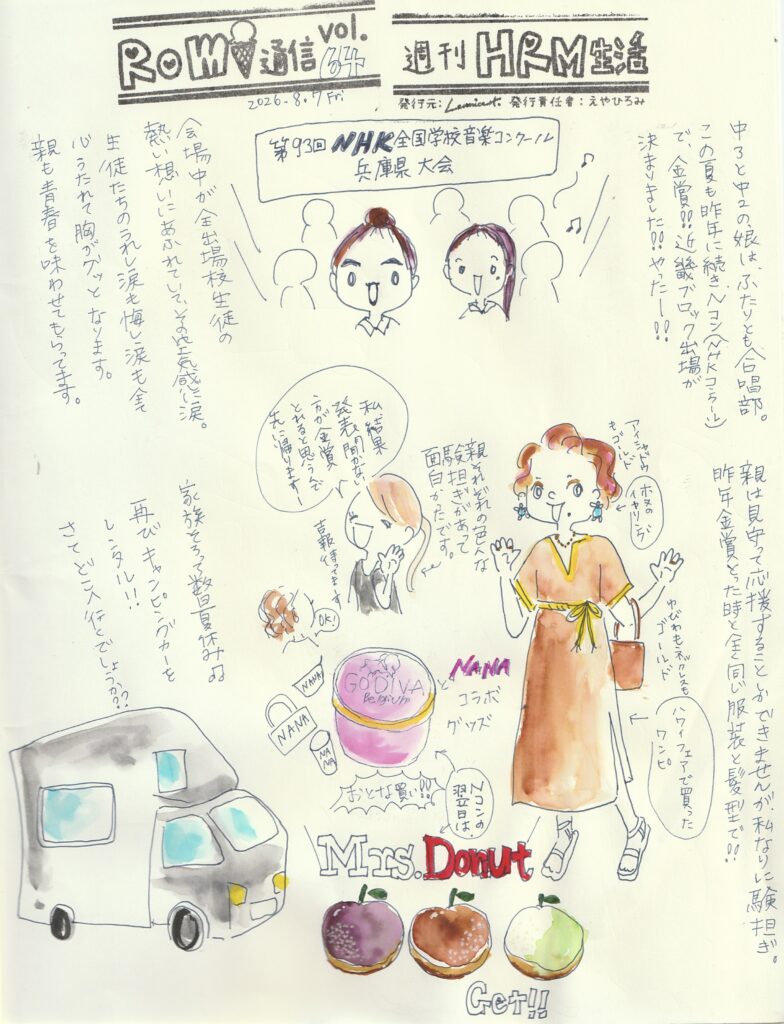 RoMi通信 vol.64
2026.8.7 Fri
週刊 HRM生活
発行元: Lemicent. 発行責任者:えやひろみ
第93回 NHK全国学校音楽コンクール
兵庫県大会
中3と中2の娘は、ふたりとも合唱部。
この夏も昨年に続きNコン(NHKコンクール)
で、金賞!!近畿ブロック出場が
決まりました!!やったー!!
会場中が全出場校生徒の
熱い想いにあふれていて、その空気感に涙。
生徒たちのうれし涙も悔し涙も全て
心うたれて胸がグッとなります。
親も青春を味わせてもらってます。
親は見守って応援することしかできませんが私なりに験担ぎ。
昨年金賞とった時と全く同じ服装と髪型で!!
アイシャドウ
もゴールド
ホヌの
イヤリング
ゆびわもネックレスも
ゴールド
ハワイフェアで買った
ワンピ
親それぞれの色んな
験担ぎがあって
面白かったです。
私、結果
発表聞かない
方が金賞
とれると思うんで
先に帰ります!
吉報待ってます
OK!
家族そろって数日夏休み♪
再びキャンピングカーを
レンタル!!
さてどこへ行くでしょうか??
GODIVA
Belgium
と
NANA
コラボ
グッズ
NANA
NANA
NANA
おとな買い!!
Nコンの
翌日は、
Mrs. Donut
Get!!